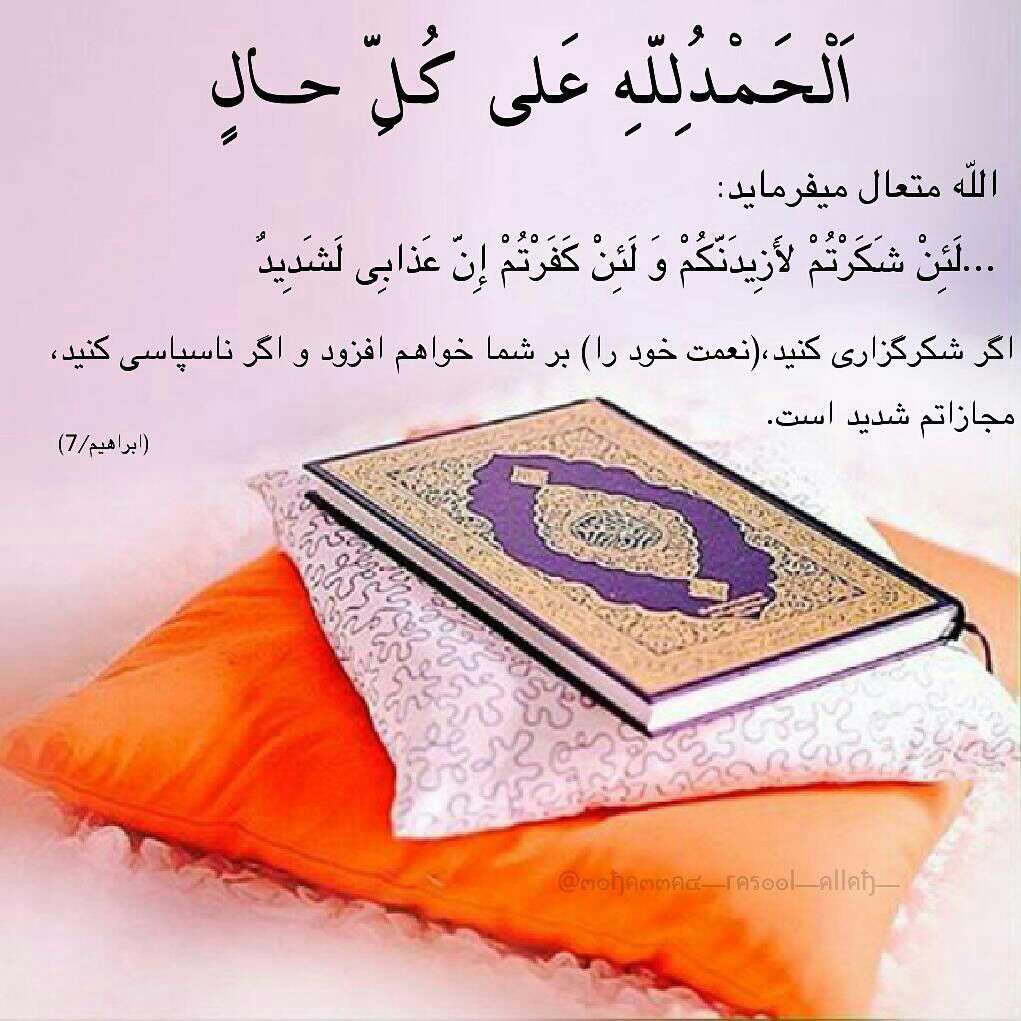 اَلْحَمْدُلِلّهِ عَلی کُلِّ حـالٍ
اللّه متعال میفرماید:
...لَئِنْ شَكَرْتُمْ لأَزِيدَنّكُمْ وَ لَئِنْ كَفَرْتُمْ إِنّ عَذابِی لَشَدِيدٌ
اگر شکرگزاری کنید،(نعمت خود را) بر شما خواهم افزود و اگر ناسپاسی کنید،
مجازاتم شدید است.
(ابراهیم/7)